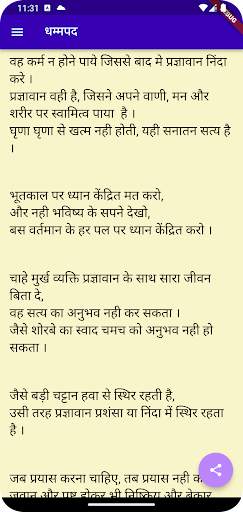 11:31
धम्मपद
वह कर्म न होने पाये जिससे बाद मे प्रज्ञावान निंदा
करे ।
प्रज्ञावान वही है, जिसने अपने वाणी, मन और
शरीर पर स्वामित्व पाया है ।
घृणा घृणा से खत्म नही होती, यही सनातन सत्य है
।
भूतकाल पर ध्यान केंद्रित मत करो,
और नही भविष्य के सपने देखो,
बस वर्तमान के हर पल पर ध्यान केंद्रित करो ।
चाहे मुर्ख व्यक्ति प्रज्ञावान के साथ सारा जीवन
बिता दे,
वह सत्य का अनुभव नही कर सकता ।
जैसे शोरबे का स्वाद चमच को अनुभव नही हो
सकता ।
जैसे बड़ी चट्टान हवा से स्थिर रहती है,
उसी तरह प्रज्ञावान प्रशंसा या निंदा में स्थिर रहता
है ।
जब प्रयास करना चाहिए, तब प्रयास नही क
जवान और पुष्ट होकर भी निष्क्रिय और बेकार